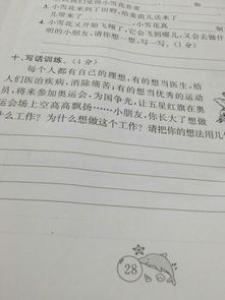 3.小雪花来到了田野,给麦苗儿送来了
儿带来了
4.小雪花又开始飞翔了,它会飞到哪儿,又会去做什
明的小朋友,请你想一想,写一写。(1分)
十、写话训练。(4分)
每个人都有自己的理想,有的想当医生,给
人们医治疾病,消除痛苦;有的想当优秀的运动
员,将来参加奥运会,为国争光,让五星红旗在奥
运会场上空高高飘扬……小朋友,你长大了想做
什么工作?为什么想做这个工作?请把你的想法用几
28